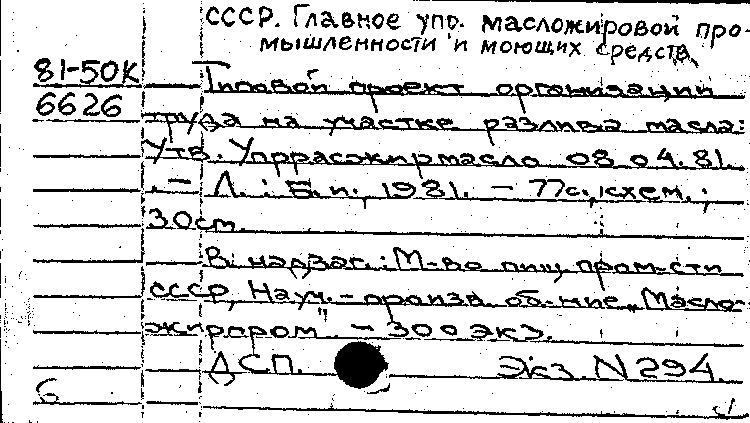 СССР. Главное упр. масложировой про-
мышленности и моющих средств
81-50К Типовой проект организации
6626 труда на участке разлива масла:
Утв. Упррасжирмасло 08.04.81.
.– Л. : Б.и., 1981. – 77с., схем. ;
30см.
В надзаг.: М-во пищ. пром-сти
СССР, Науч.-произв. об-ние „Масло-
жирпром" – 300 экз.
ДСП. Экз. N 294.
б